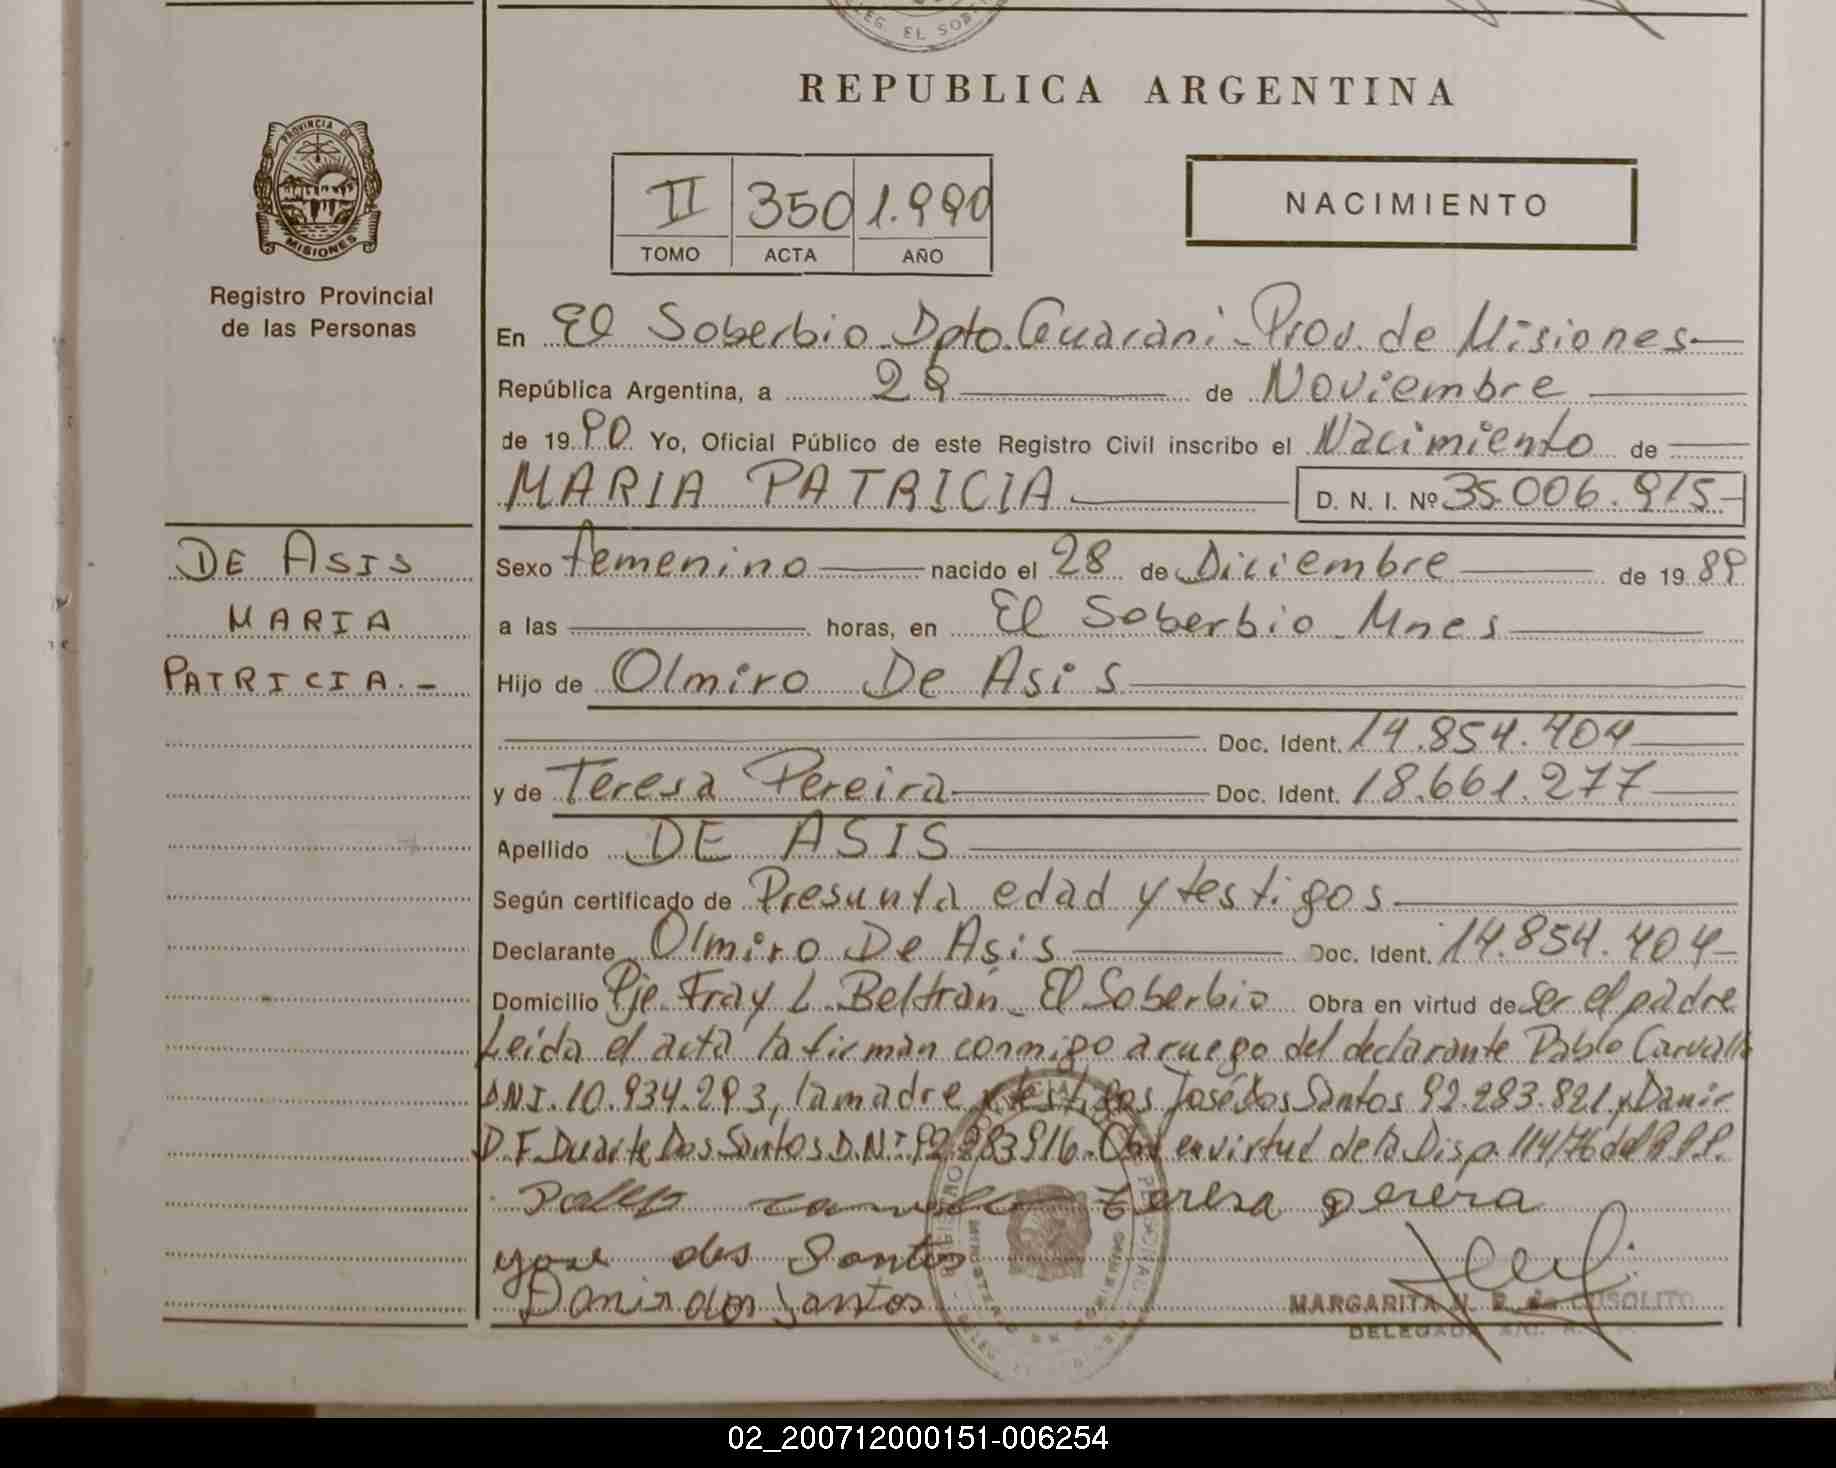 DELEG. EL SOB
REPUBLICA ARGENTINA
PROVINCIA DE
MISIONES
Registro Provincial
de las Personas
II 350 1.990
TOMO ACTA AÑO
NACIMIENTO
En El Soberbio Dpto. Guarani - Prov. de Misiones
República Argentina, a 29 de Noviembre
de 1990 Yo, Oficial Público de este Registro Civil inscribo el Nacimiento de
MARIA PATRICIA D. N. I. Nº 35.006.915-
DE ASIS
MARIA
PATRICIA.-
Sexo femenino nacido el 28 de Diciembre de 1989
a las horas, en El Soberbio Mnes
Hijo de Olmiro De Asis
Doc. Ident. 14.854.404
y de Teresa Pereira Doc. Ident. 18.661.277
Apellido DE ASIS
Según certificado de Presunta edad y testigos
Declarante Olmiro De Asis Doc. Ident. 14.854.404-
Domicilio Pje Fray L. Beltrán - El Soberbio Obra en virtud de Ser el padre
Leida el acta la firman conmigo a ruego del declarante Pablo Carvallo
DNI. 10.934.293, la madre y testigos José dos Santos 92.283.821 y Danir
D.F. Duarte Dos Santos D.N.I 92.283916. Obra en virtud de la Disp. 114/76 del R.P.P.
teresa perera
yose dos Santos
Danir dos Santos
MARGARITA N. R. de CUSOLITO
DELEGADA
02_200712000151-006254